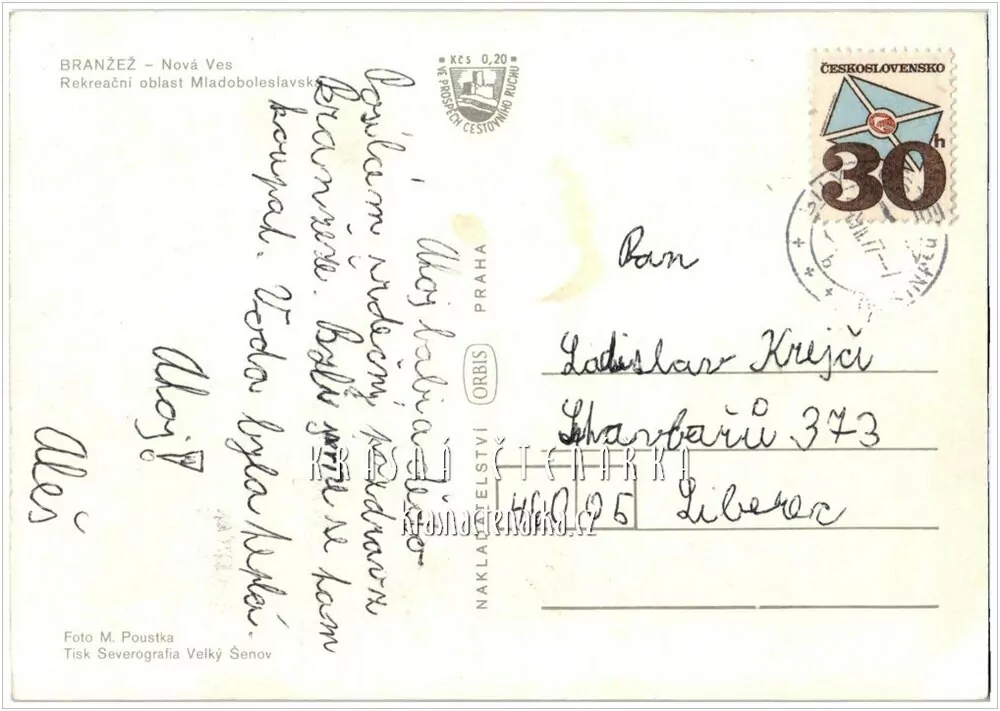 BRANŽEŽ – Nová Ves
Rekreační oblast Mladoboleslavska
Kčs 0,20
VE PROSPĚCH CESTOVNÍHO RUCHU
ČESKOSLOVENSKO
30h
Ahoj babi a dědo
Posílám srdečný pozdrav z
Branžeže. Byli jsme se tam
koupat. Voda byla teplá.
Ahoj!
Aleš
NAKLADATELSTVÍ ORBIS PRAHA
Pan
Ladislav Krejčí
Stavbařů 373
460 05 Liberec
KRÁSNÁ ČTENÁŘKA
krasnactenarka.cz
Foto M. Poustka
Tisk Severografia Velký Šenov